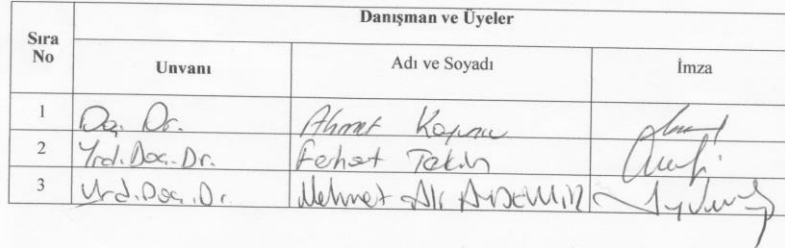 Danışman ve Üyeler
Sıra No Unvanı Adı ve Soyadı İmza
1 Doç. Dr. Ahmet
2 Yrd. Doç. Dr. Ferhat Tekin
3 Yrd. Doç. Dr. Mehmet Ali AYDEMİR